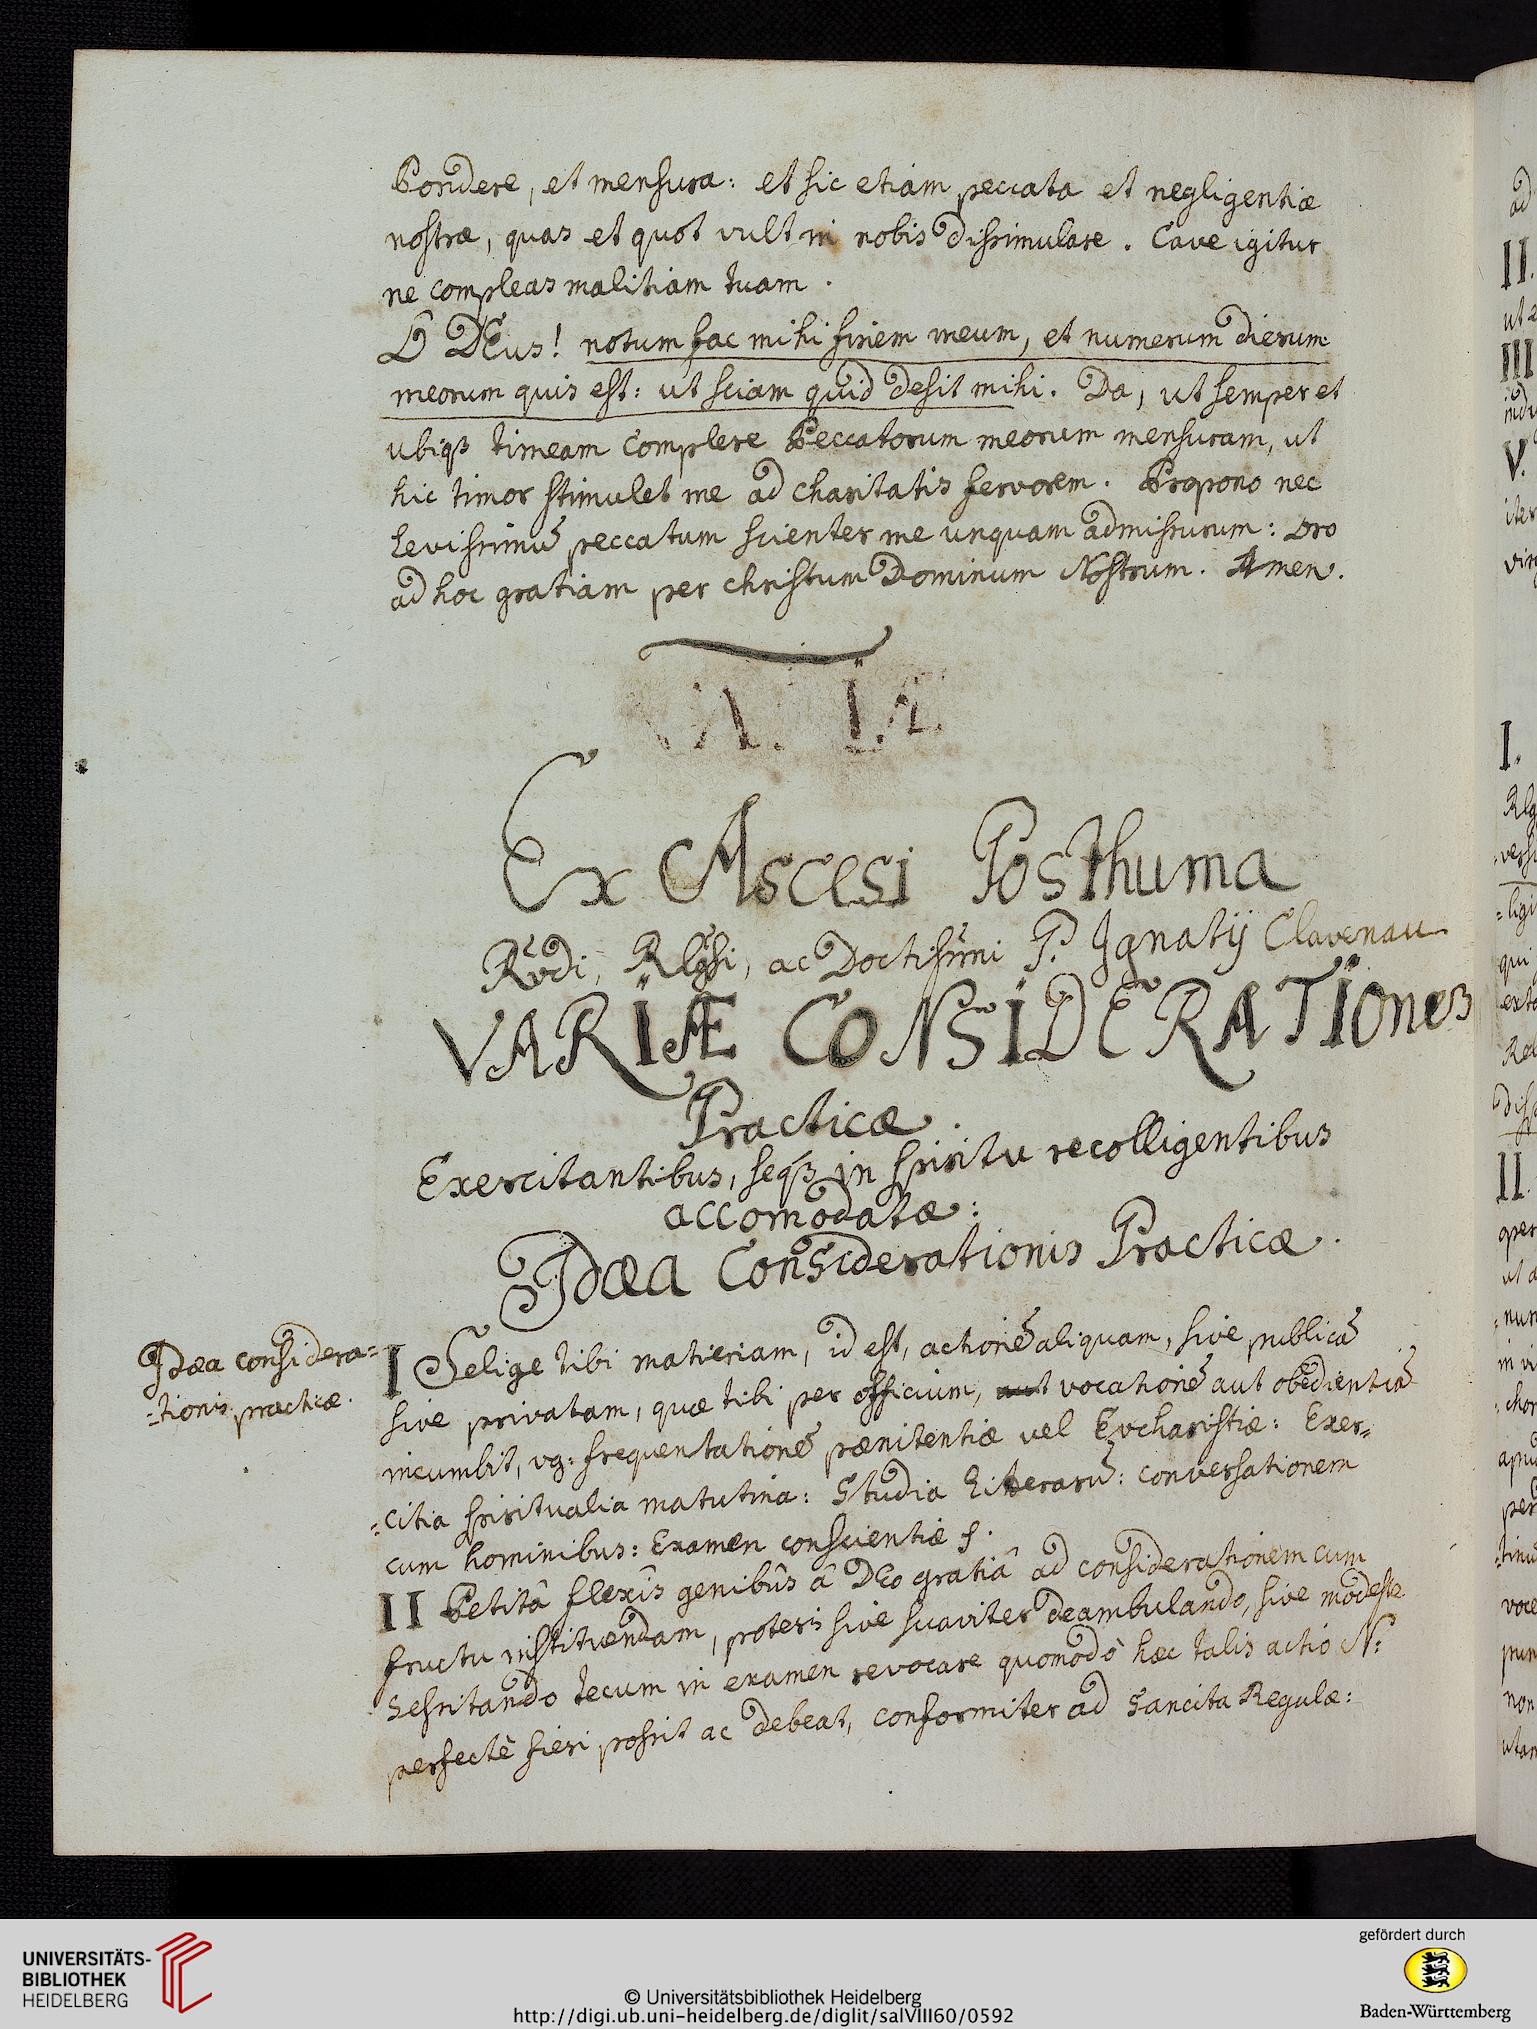 Pondere, et mensura: et sic etiam peccata et negligentiæ
nostræ, quas et quot vult in nobis dissimulare. Cave igitur
ne compleas malitiam tuam.
O DEus! notum fac mihi finem meum, et numerum dierum
meorum quis est: ut sciam quid desit mihi. Da, ut semper et
ubiqꝫ timeam complere Peccatorum meorum mensuram, ut
hic timor stimulet me ad charitatis fervorem. Propono nec
levissimũ peccatum scienter me unquam admissurum: oro
ad hoc gratiam per christum Dominum Nostrum. Amen.
Ex Ascesi Posthuma
Rṽdi, Rlgsi, ac Doctissimi P. Ignatij Clavenau
VARIÆ CONSIDERATIones
Practicæ
Exercitantibus, seqꝫ in spiritu recolligentibus
accomodatæ:
Idæa Considerationis Practicæ.
Idæa considera=
=tionis practicæ.
I Selige tibi materiam, id est, actionẽ aliquam, sive publicã
sive privatam, quæ tibi per officium, aut vocationẽ aut obedientiã
incumbit, vg: frequentationẽ pænitentiæ vel Eucharistiæ: Exer=
=citia spiritualia matutina: Studia Literarũ: conversationem
cum hominibus: Examen conscientiæ
II Petitâ flexîs genibûs â DEo gratiâ ad considerationem cum
fructu instituendam, poteris sive suaviter deambulando, sive modeste
sessitando tecum in examen revocare quomodò hæc talis actio N:
perfectè fieri possit ac debeat, conformiter ad Sancita Regulæ:
UNIVERSITÄTS-
BIBLIOTHEK
HEIDELBERG
© Universitätsbibliothek Heidelberg
http://digi.ub.uni-heidelberg.de/diglit/salVIII60/0592
gefördert durch
Baden-Württemberg